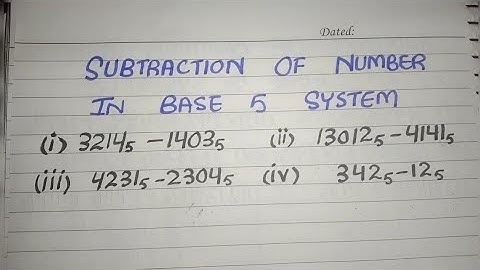 Dated:
SUBTRACTION OF NUMBER
IN BASE 5 SYSTEM
(i) 3214₅ - 1403₅ (ii) 13012₅ - 4141₅
(iii) 4231₅ - 2304₅ (iv) 342₅ - 12₅